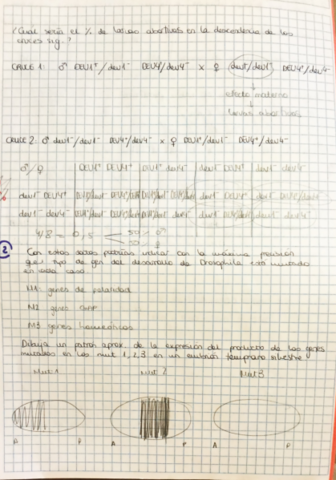 ¿Cuál sería el % de larvas abortivas en la descendencia de los
cruces sig.?
CRUCE 1: ♂ DEV1⁺/dev1⁻ DEV4⁺/dev4⁻ × ♀ dev1⁻/dev1⁻ DEV4⁺/dev4⁻
efecto materno
larvas abortivas
CRUCE 2: ♂ dev1⁻/dev1⁻ DEV4⁺/dev4⁻ × ♀ DEV1⁺/dev1⁻ DEV4⁺/dev4⁻
♂/♀ DEV1⁺ DEV4⁺ DEV1⁺ dev4⁻ dev1⁻ DEV4⁺ dev1⁻ dev4⁻
dev1⁻ DEV4⁺
dev1⁻ dev4⁻
4/8 = 0,5 50 ♂
50 ♀
2
Con estos datos podrías indicar con la máxima precisión
qué tipo de gen del desarrollo de Drosophila está mutado
en cada caso
M1 genes de polaridad
M2 genes GAP
M3 genes homeóticos
Dibuja un patrón aprox. de la expresión del producto de los genes
mutados en los mut 1, 2, 3 en un embrión temprano silvestre
Mut 1 Mut 2 Mut 3
A P A P A P